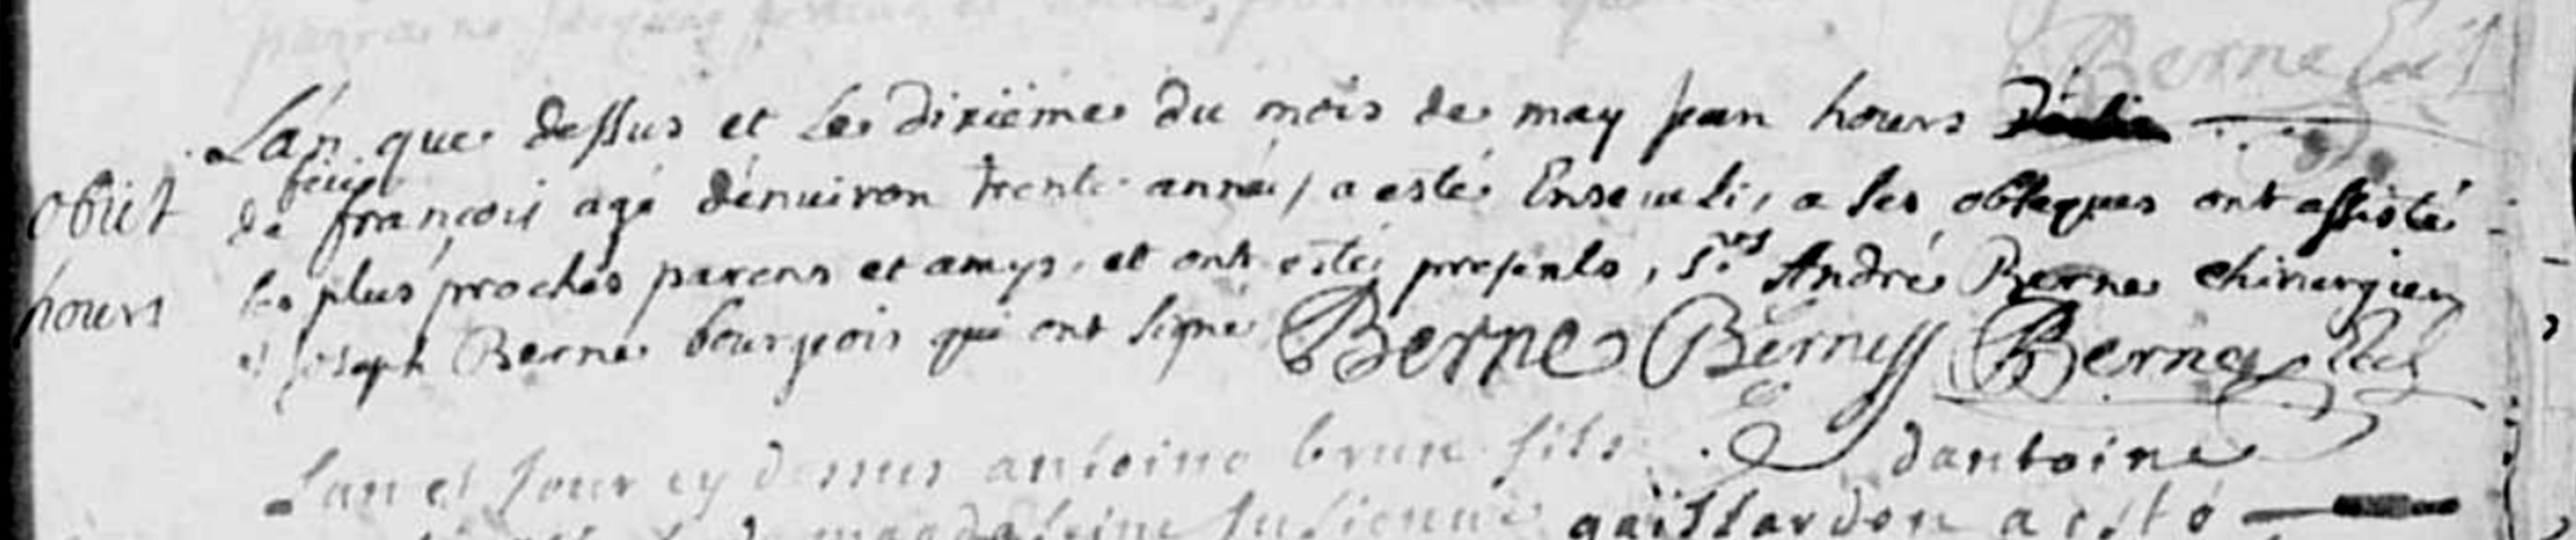 Berne
L'an que dessus et le dixiéme du mois de may jean hours
obiit
feu
de françois agé d'enuiron trente année, a esté Enseueli, a ses obseques ont assisté
hours
les plus proches parens et amys, et ont estéz presents, Srs André Berne chirurgien
et joseph Berne bourgeois qui ont signé Berne Berne Berne
L'an et jour cy dessus antoine brun fils dantoine
magdeleine gaillardon a esté